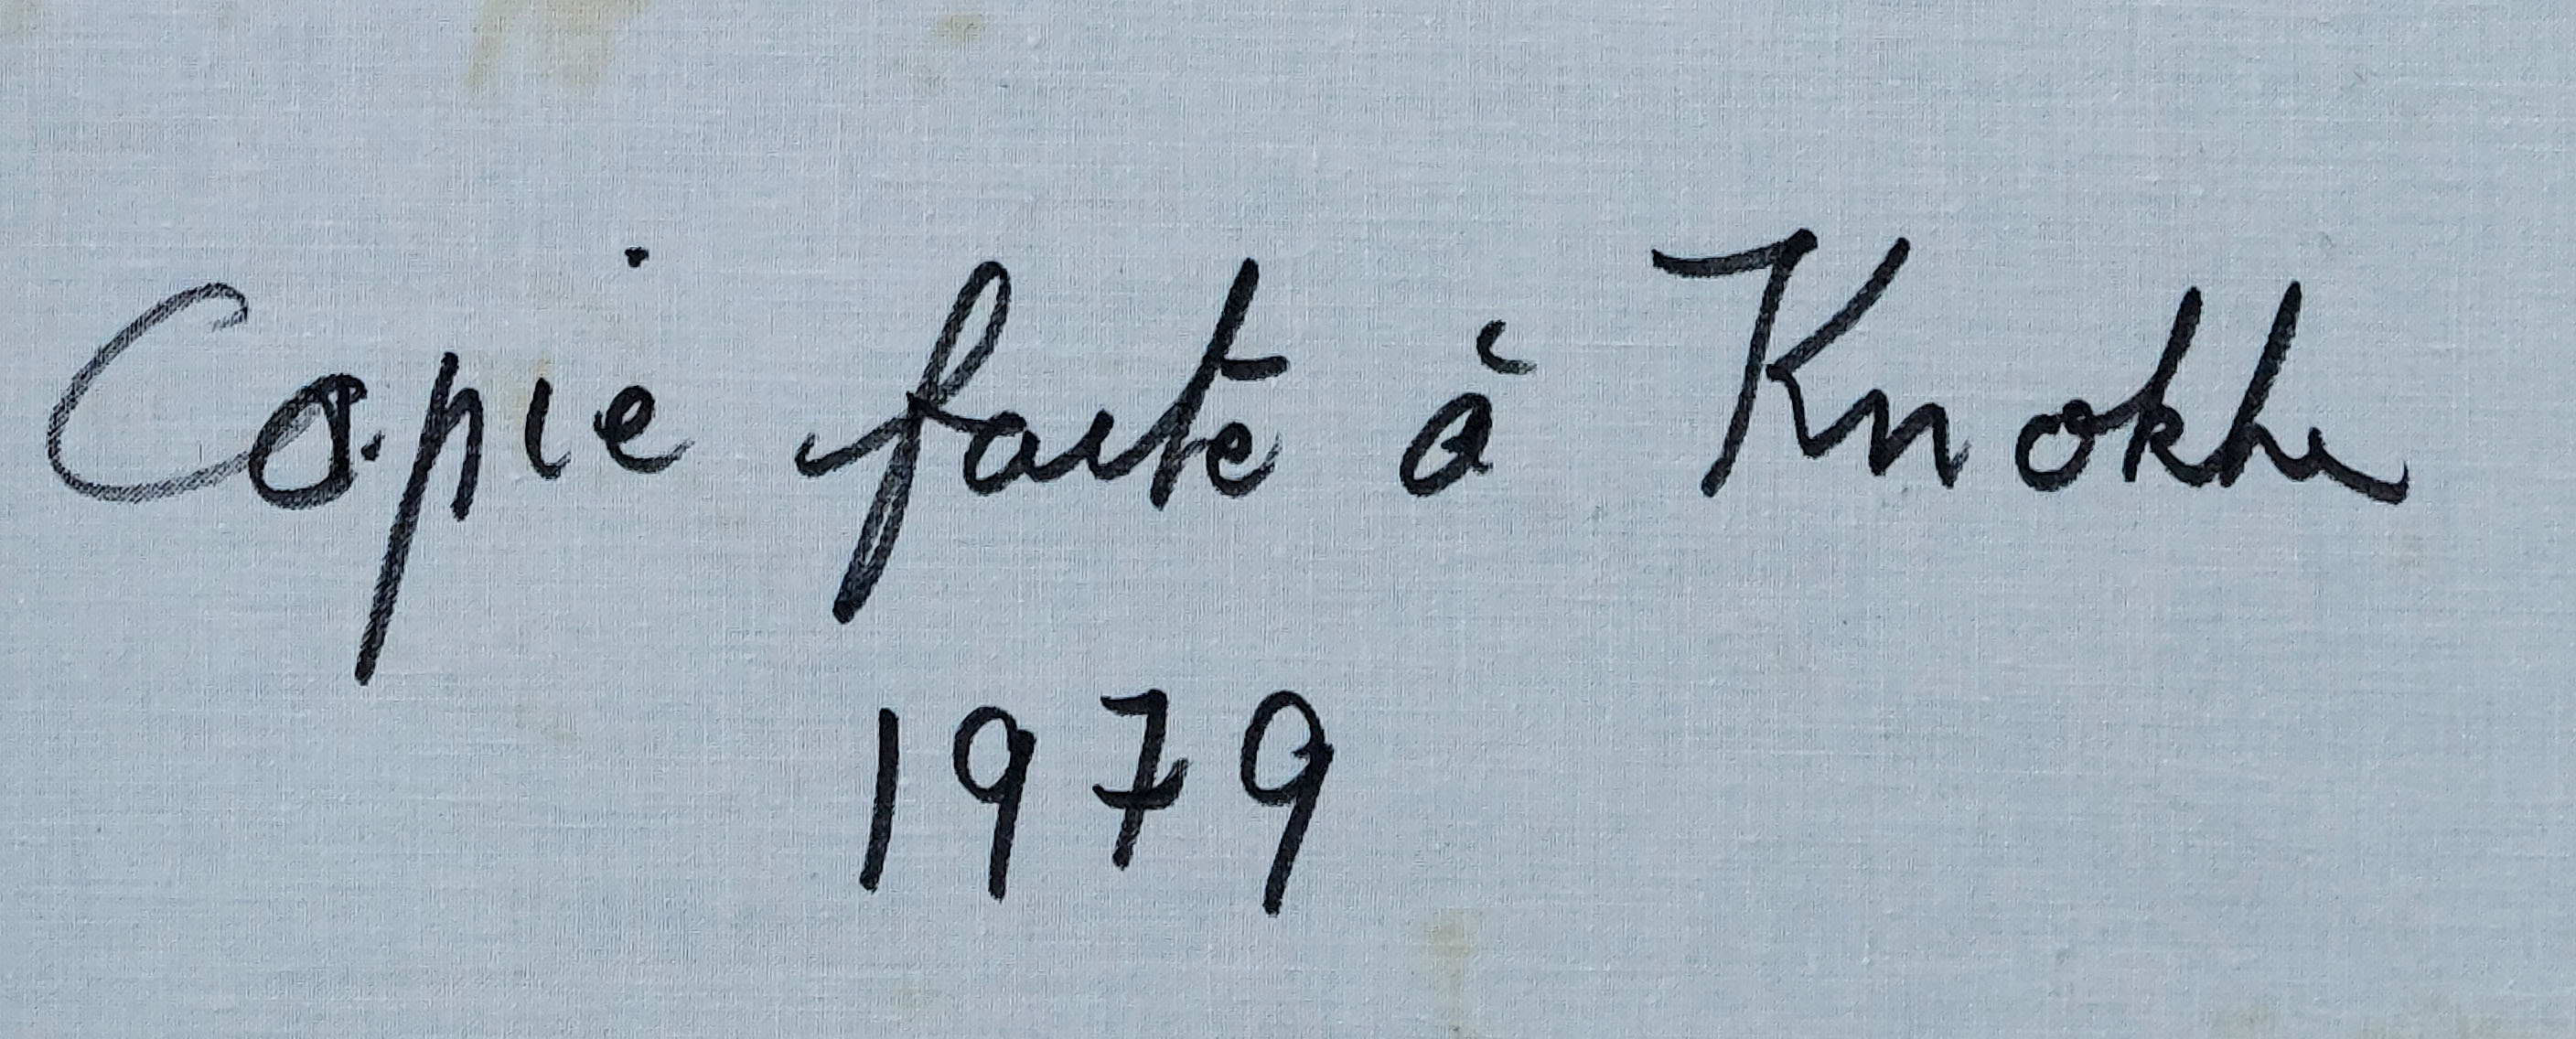 Copie faite à Knokke
1979